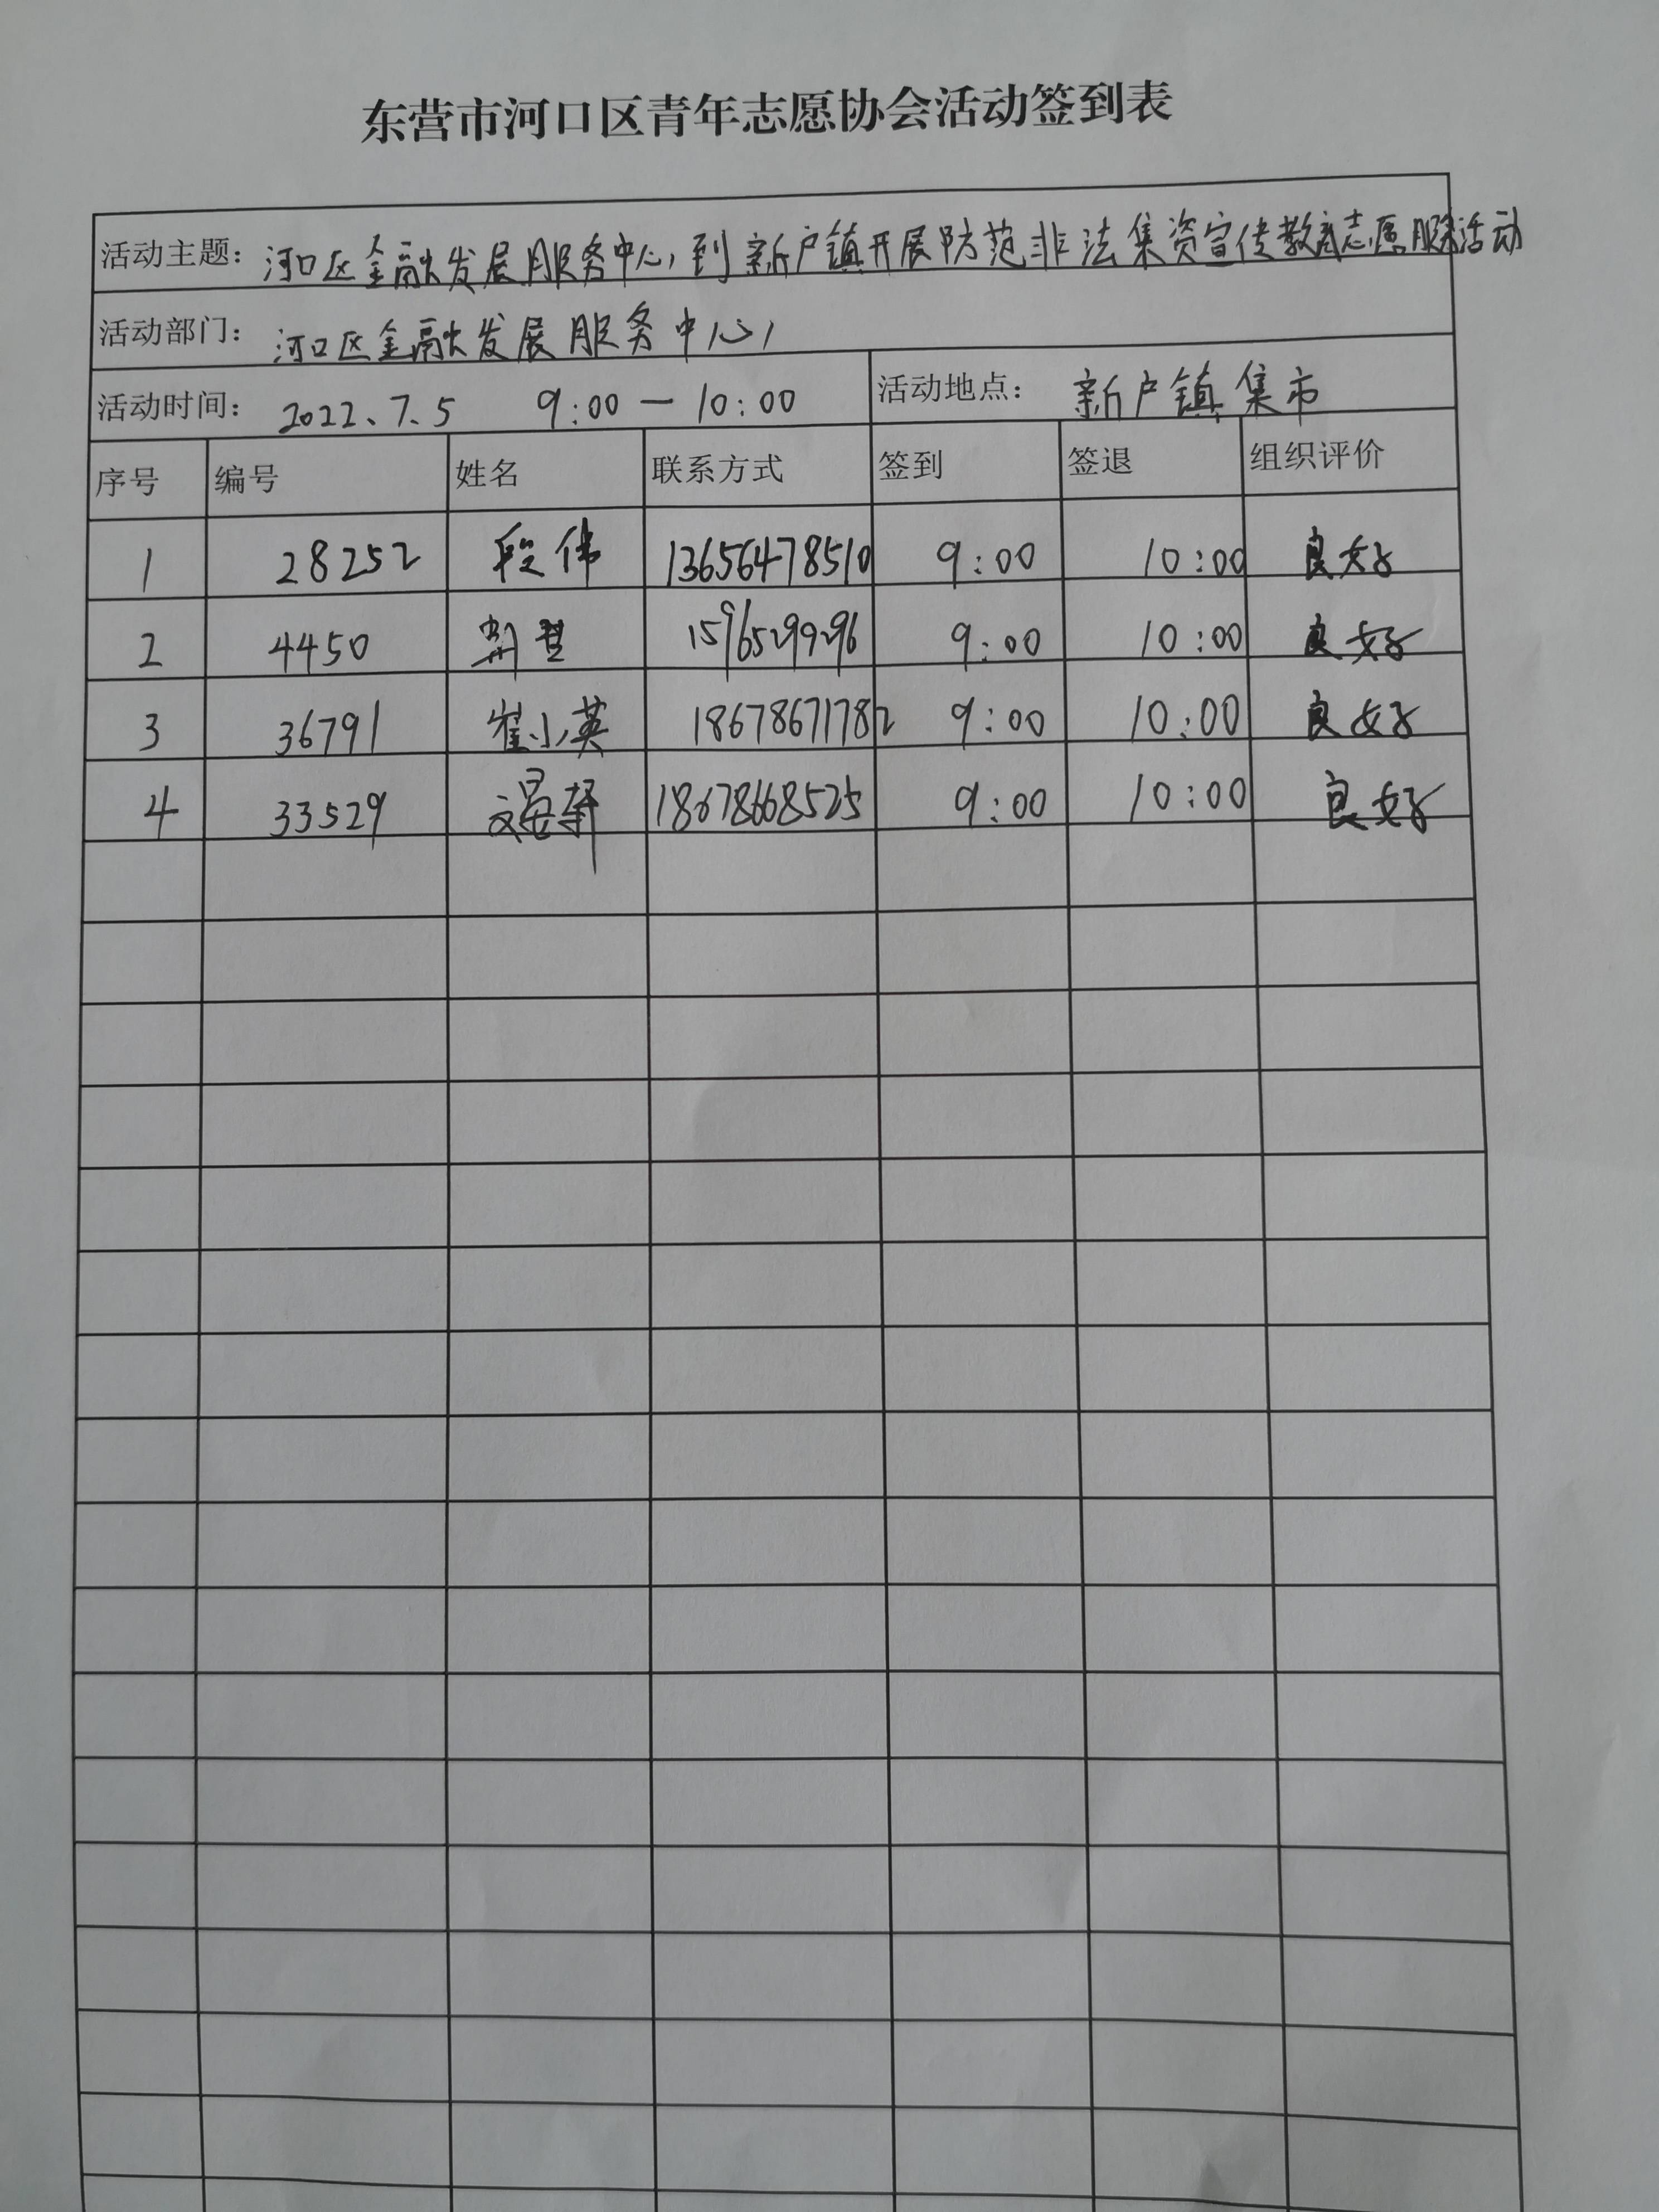 东营市河口区青年志愿协会活动签到表
活动主题：河口区金融发展服务中心到新户镇开展防范非法集资宣传教育志愿服务活动
活动部门：河口区金融发展服务中心
活动时间：2022、7.5 9:00—10:00 活动地点：新户镇集市
序号 编号 姓名 联系方式 签到 签退 组织评价
1 28252 段伟 13656478510 9:00 10:00 良好
2 4450 15965299296 9:00 10:00 良好
3 36791 崔小英 18678671782 9:00 10:00 良好
4 33529 18678668525 9:00 10:00 良好